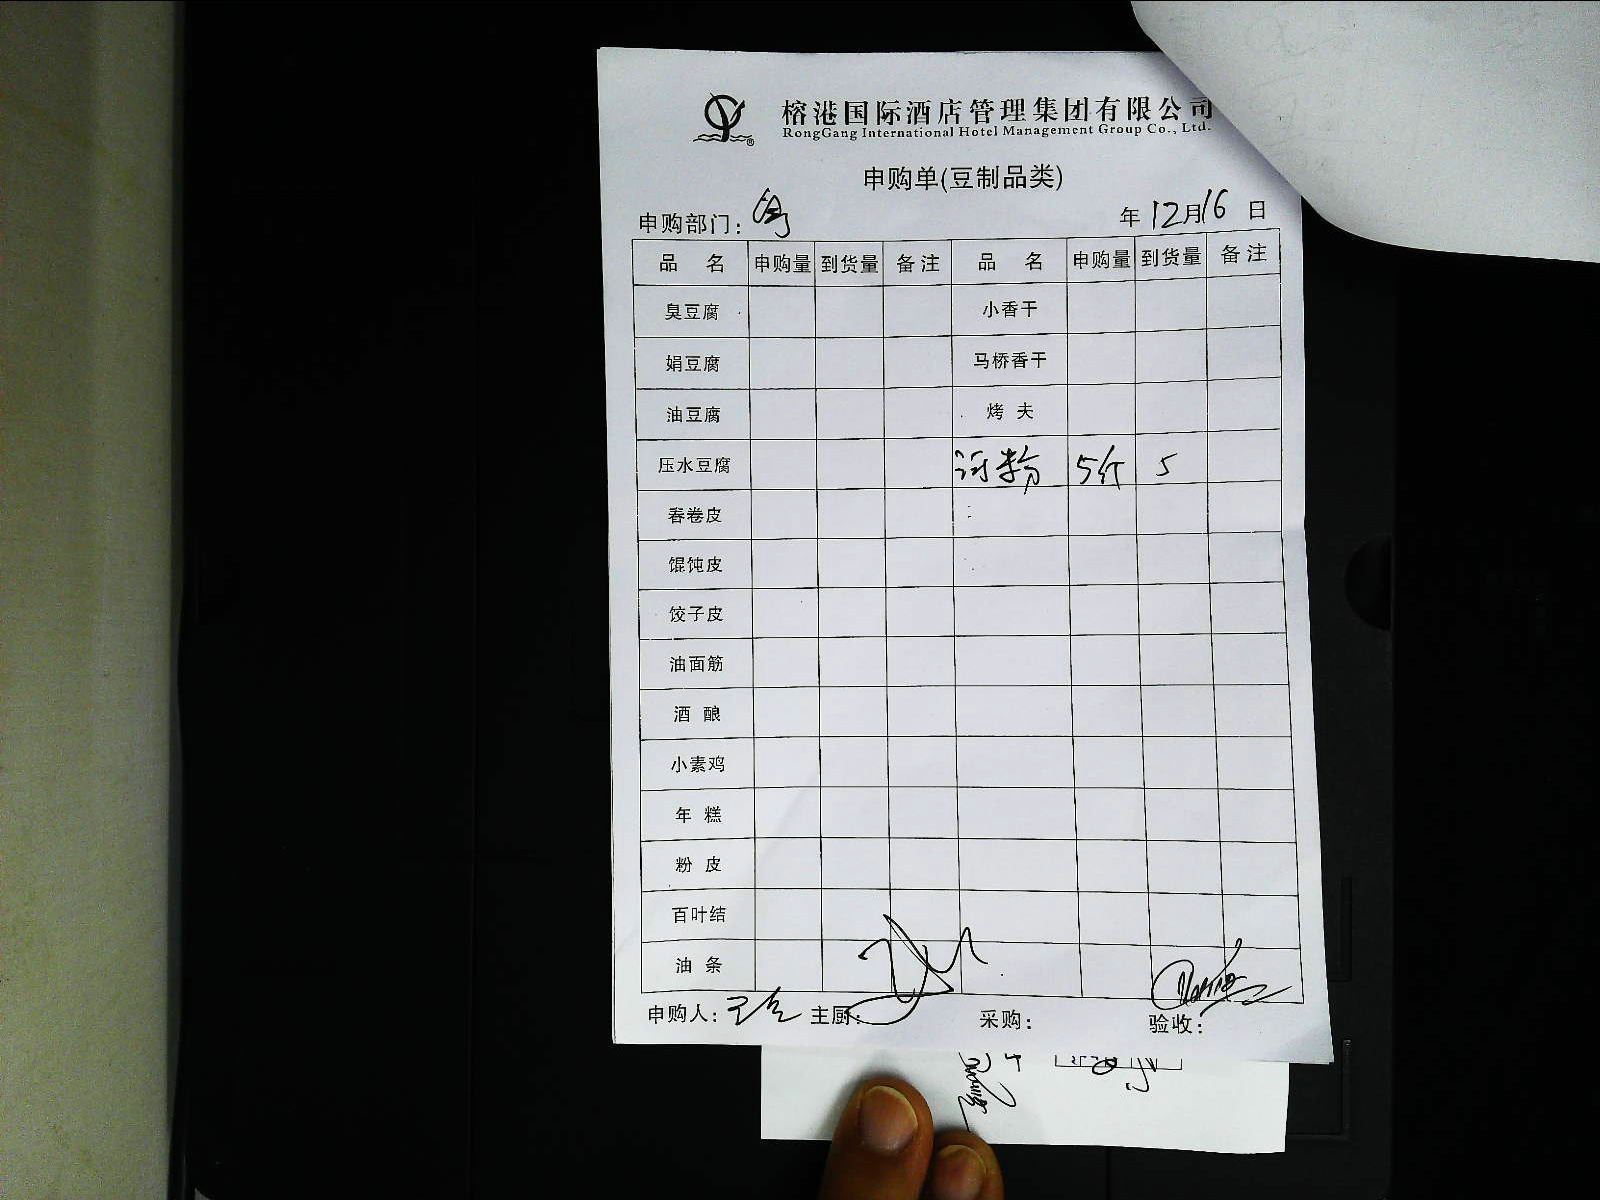 榕港国际酒店管理集团有限公司
RongGang International Hotel Management Group Co., Ltd.
®
申购单(豆制品类)
申购部门:
年 12月16 日
品 名 申购量 到货量 备注 品 名 申购量 到货量 备注
臭豆腐 小香干
娟豆腐 马桥香干
油豆腐 烤 夫
压水豆腐 河粉 5斤 5
春卷皮
馄饨皮
饺子皮
油面筋
酒 酿
小素鸡
年 糕
粉 皮
百叶结
油 条
申购人: 主厨: 采购: 验收: